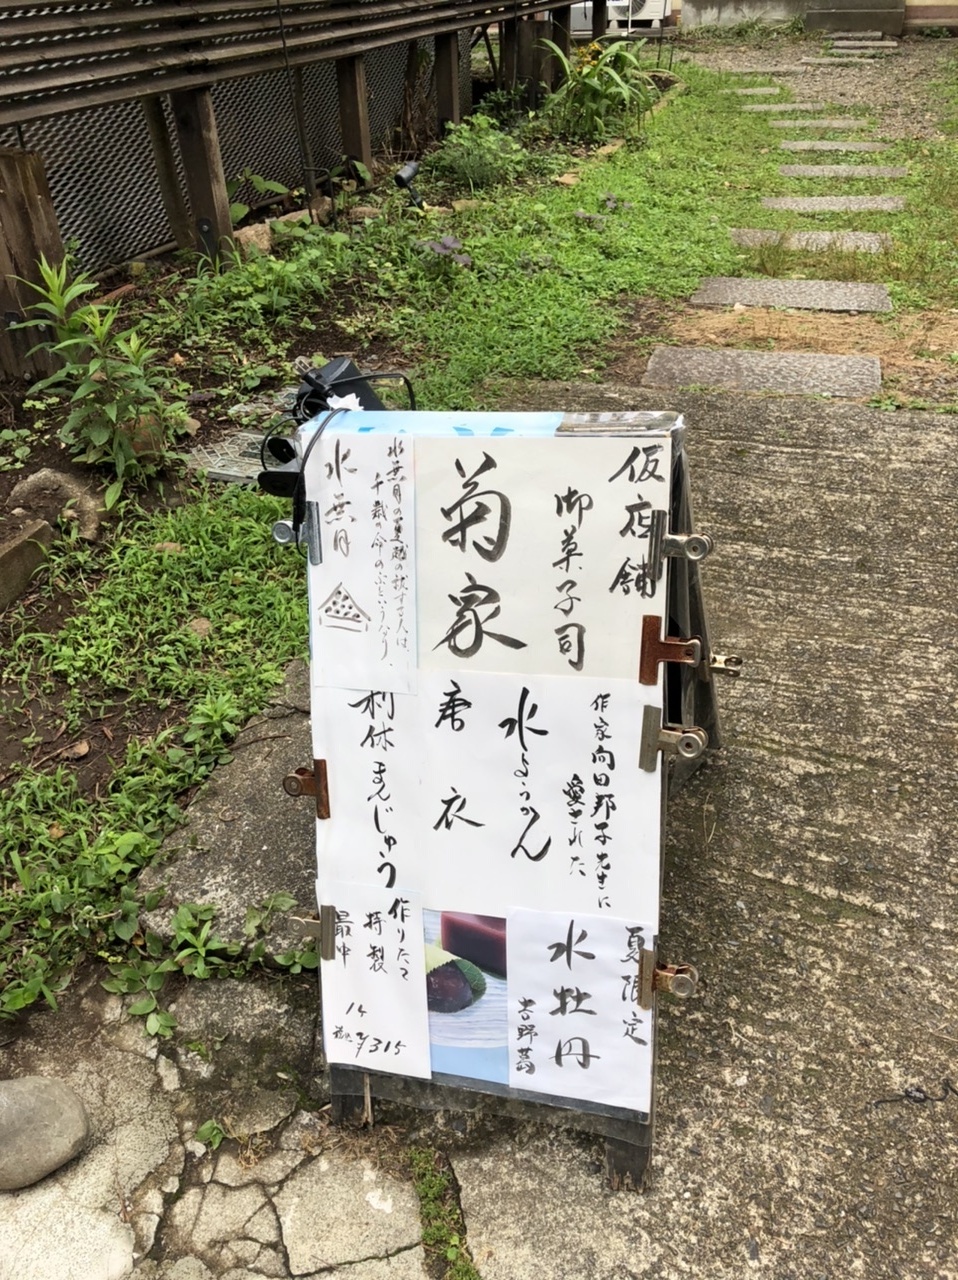 仮店舗
御菓子司
菊家
水無月の夏越の祓する人は、
千歳の命のぶというなり、
水無月
作家向田邦子先生に
愛された
水ようかん
唐衣
利休まんじゅう
夏限定
水牡丹
吉野葛
作りたて
特製
最中
1ヶ
¥315